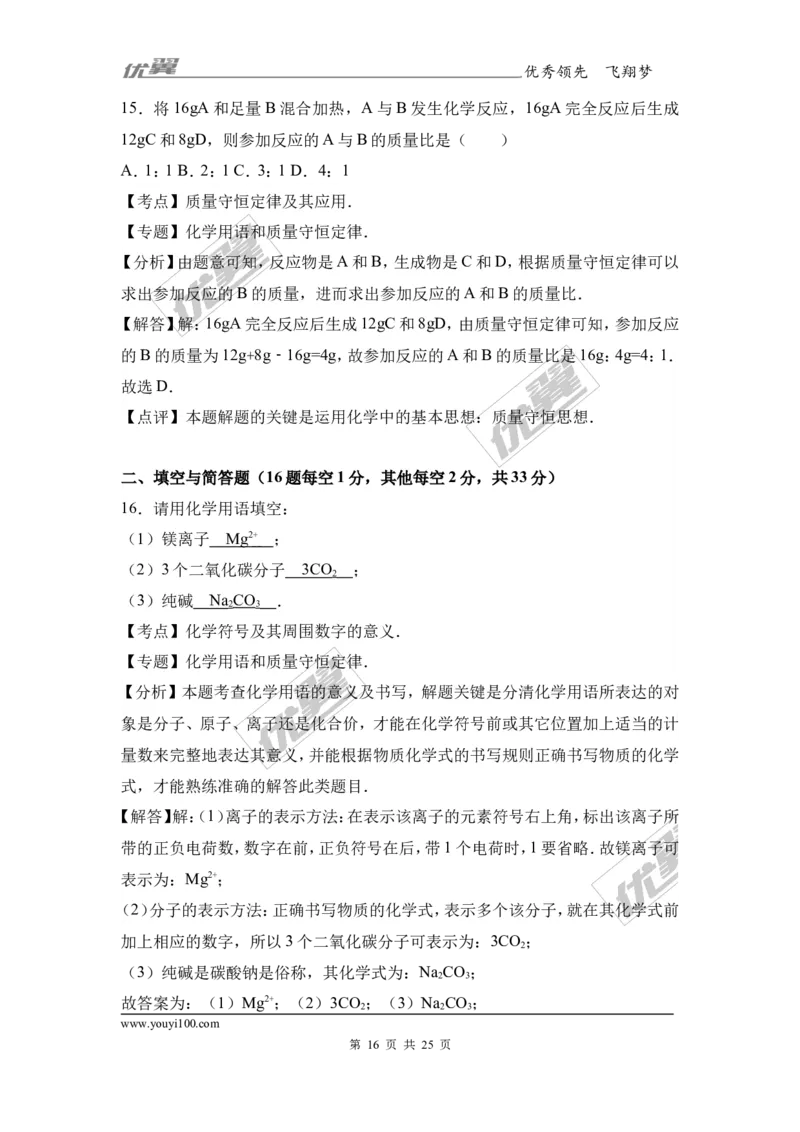 优翼 优秀领先 飞翔梦
15．将 16gA 和足量 B 混合加热，A 与 B 发生化学反应，16gA 完全反应后生成
12gC 和 8gD，则参加反应的 A 与 B 的质量比是（　　）
A．1：1 B．2：1 C．3：1 D．4：1
【考点】质量守恒定律及其应用．
【专题】化学用语和质量守恒定律．
【分析】由题意可知，反应物是 A 和 B，生成物是 C 和 D，根据质量守恒定律可以
求出参加反应的 B 的质量，进而求出参加反应的 A 和 B 的质量比．
【解答】解：16gA 完全反应后生成 12gC 和 8gD，由质量守恒定律可知，参加反应
的 B 的质量为 12g+8g﹣16g=4g，故参加反应的 A 和 B 的质量比是 16g：4g=4：1．
故选 D．
【点评】本题解题的关键是运用化学中的基本思想：质量守恒思想．
二、填空与简答题（16 题每空 1 分，其他每空 2 分，共 33 分）
16．请用化学用语填空：
（1）镁离子　Mg²⁺　；
（2）3 个二氧化碳分子　3CO₂　；
（3）纯碱　Na₂CO₃　．
【考点】化学符号及其周围数字的意义．
【专题】化学用语和质量守恒定律．
【分析】本题考查化学用语的意义及书写，解题关键是分清化学用语所表达的对
象是分子、原子、离子还是化合价，才能在化学符号前或其它位置加上适当的计
量数来完整地表达其意义，并能根据物质化学式的书写规则正确书写物质的化学
式，才能熟练准确的解答此类题目．
【解答】解：（1）离子的表示方法：在表示该离子的元素符号右上角，标出该离子所
带的正负电荷数，数字在前，正负符号在后，带 1 个电荷时，1 要省略．故镁离子可
表示为：Mg²⁺；
（2）分子的表示方法：正确书写物质的化学式，表示多个该分子，就在其化学式前
加上相应的数字，所以 3 个二氧化碳分子可表示为：3CO₂；
（3）纯碱是碳酸钠是俗称，其化学式为：Na₂CO₃；
故答案为：（1）Mg²⁺；（2）3CO₂；（3）Na₂CO₃；
www.youyi100.com
第 16 页 共 25 页